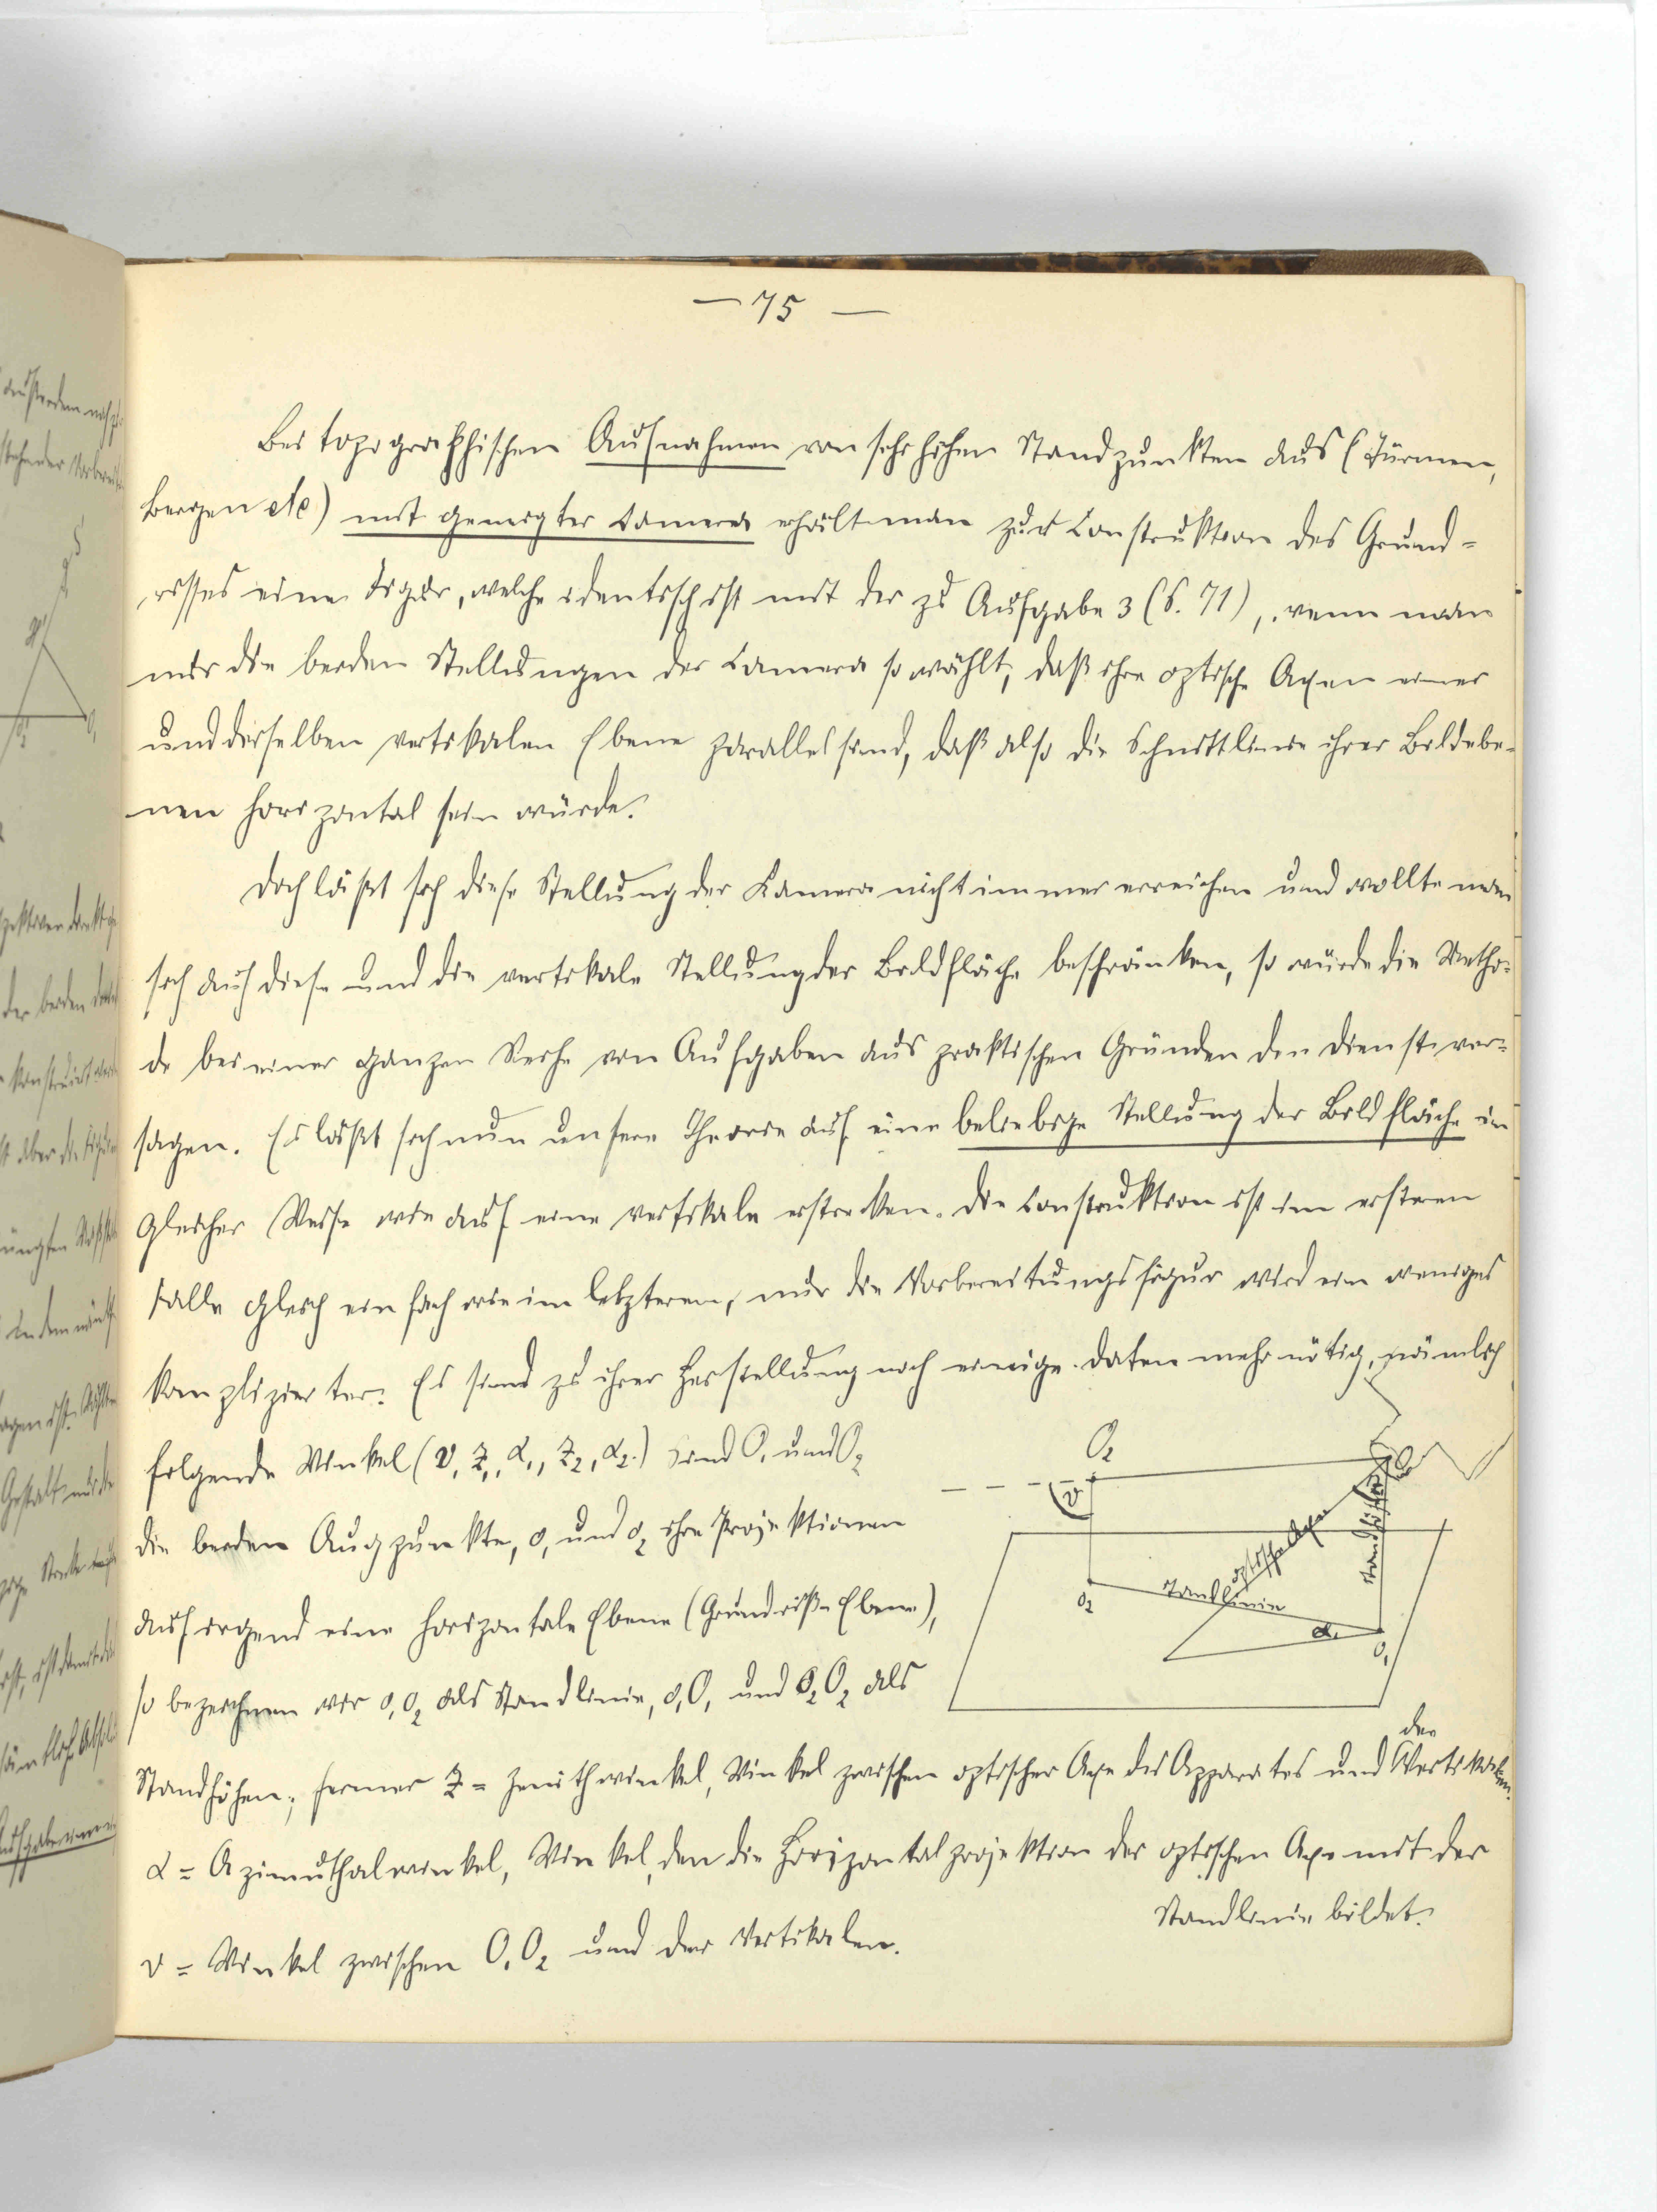 — 75 —
Bei topographischen Aufnahmen von sehr hohen Standpunkten aus (Türmen,
Bergen etc) mit geneigter Camera erhält man zur Construktion des Grund-
risses eine Figur, welche identisch ist mit der zu Aufgabe 3 (S. 71), wenn man
nur die beiden Stellungen der Camera so wählt, daß ihre optische Axen einer
und derselben vertikalen Ebene parallel sind, daß also die Schnittlinie ihrer Bildebe-
nen horizontal sein würde.
Doch läßt sich diese Stellung der Kamera nicht immer erreichen und wollte man
sich auf diese und die vertikale Stellung der Bildfläche beschränken, so würde die Metho-
de bei einer ganzen Reihe von Aufgaben aus praktischen Gründen den Dienst ver-
sagen. Es läßt sich nun unsere Theorie auf eine beliebige Stellung der Bildfläche in
gleicher Weise wie auf eine vertikale erstrecken. Die Construktion ist im ersteren
Falle gleich einfach wie im letzteren, nur die Vorbereitungsfigur wird ein weniges
komplizierter. Es sind zu ihrer Herstellung noch einige Daten mehr nötig, nämlich
folgende Winkel (v, z₁, α₁, z₂, α₂.) Sind O₁ und O₂
die beiden Augpunkte, o₁ und o₂ ihre Projektionen
auf irgend eine horizontale Ebene (Grundriß-Ebene),
so bezeichnen wir o₁o₂ als Standlinie, o₁O₁ und o₂O₂ als
Standhöhen; ferner z = Zenithwinkel, Winkel zwischen optischer Axe des Apparates und der Vertikalen.
α = Azimuthalwinkel, Winkel, den die Horizontalprojektion der optischen Axe mit der
Standlinie bildet.
v = Winkel zwischen O₁O₂ und der Vertikalen.
O₂
v
optische Axe
Standhöhe
Standlinie
o₂
α₁
o₁